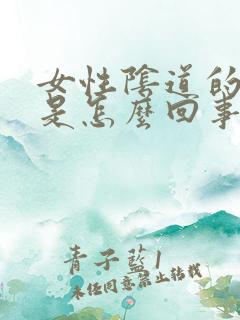 女性陰道的
是怎麼回事
青子藍1
未任同意禁止轉載